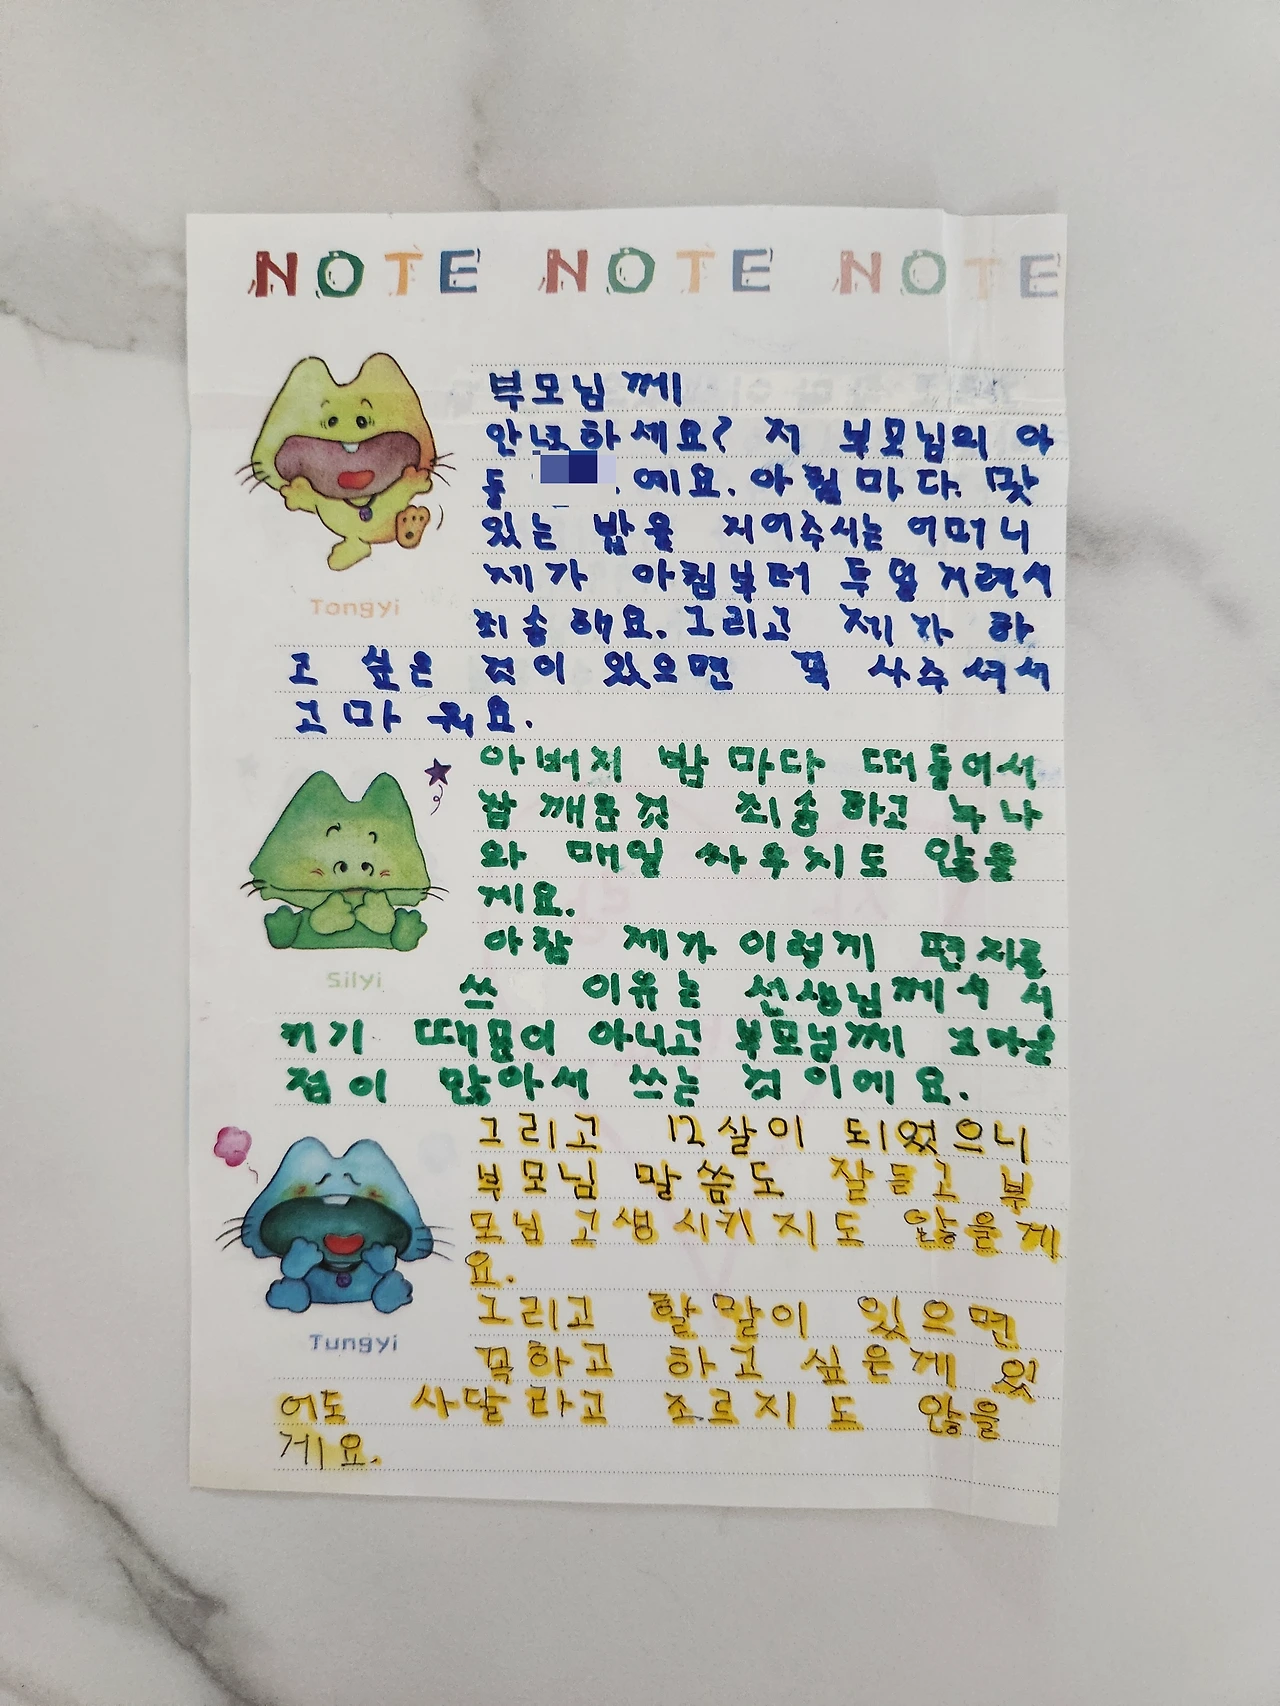 NOTE NOTE NOTE
부모님께
안녕하세요? 저 부모님의 아
들 예요. 아침마다 맛
있는 밥을 지어주시는 어머니
제가 아침부터 투덜거려서
죄송해요. 그리고 제가 하
고 싶은 것이 있으면 꼭 사주셔서
고마워요.
Tongyi
아버지 밤마다 떠들어서
잠 깨운것 죄송하고 누나
와 매일 싸우지도 않을
게요.
아참 제가 이렇게 편지를
쓰 이유는 선생님께서 시
키기 때문이 아니고 부모님께 고마운
점이 많아서 쓰는 것이에요.
Silyi
그리고 12살이 되었으니
부모님 말씀도 잘듣고 부
모님 고생시키지도 않을게
요.
그리고 할말이 있으면
꼭하고 하고 싶은게 있
어도 사달라고 조르지도 않을
게요.
Tungyi